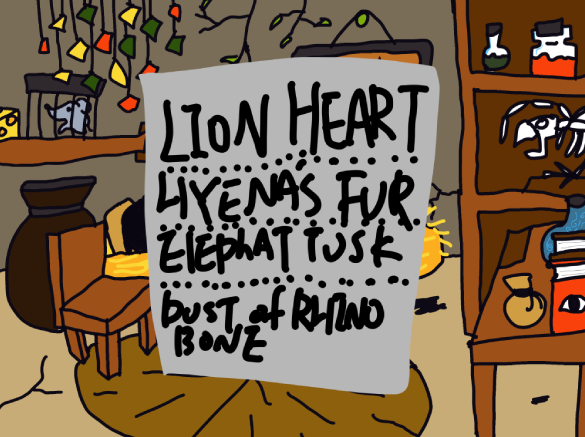 LION HEART
HYENA'S FUR
ElEphAT TUSK
DUST of RHINO
BONE